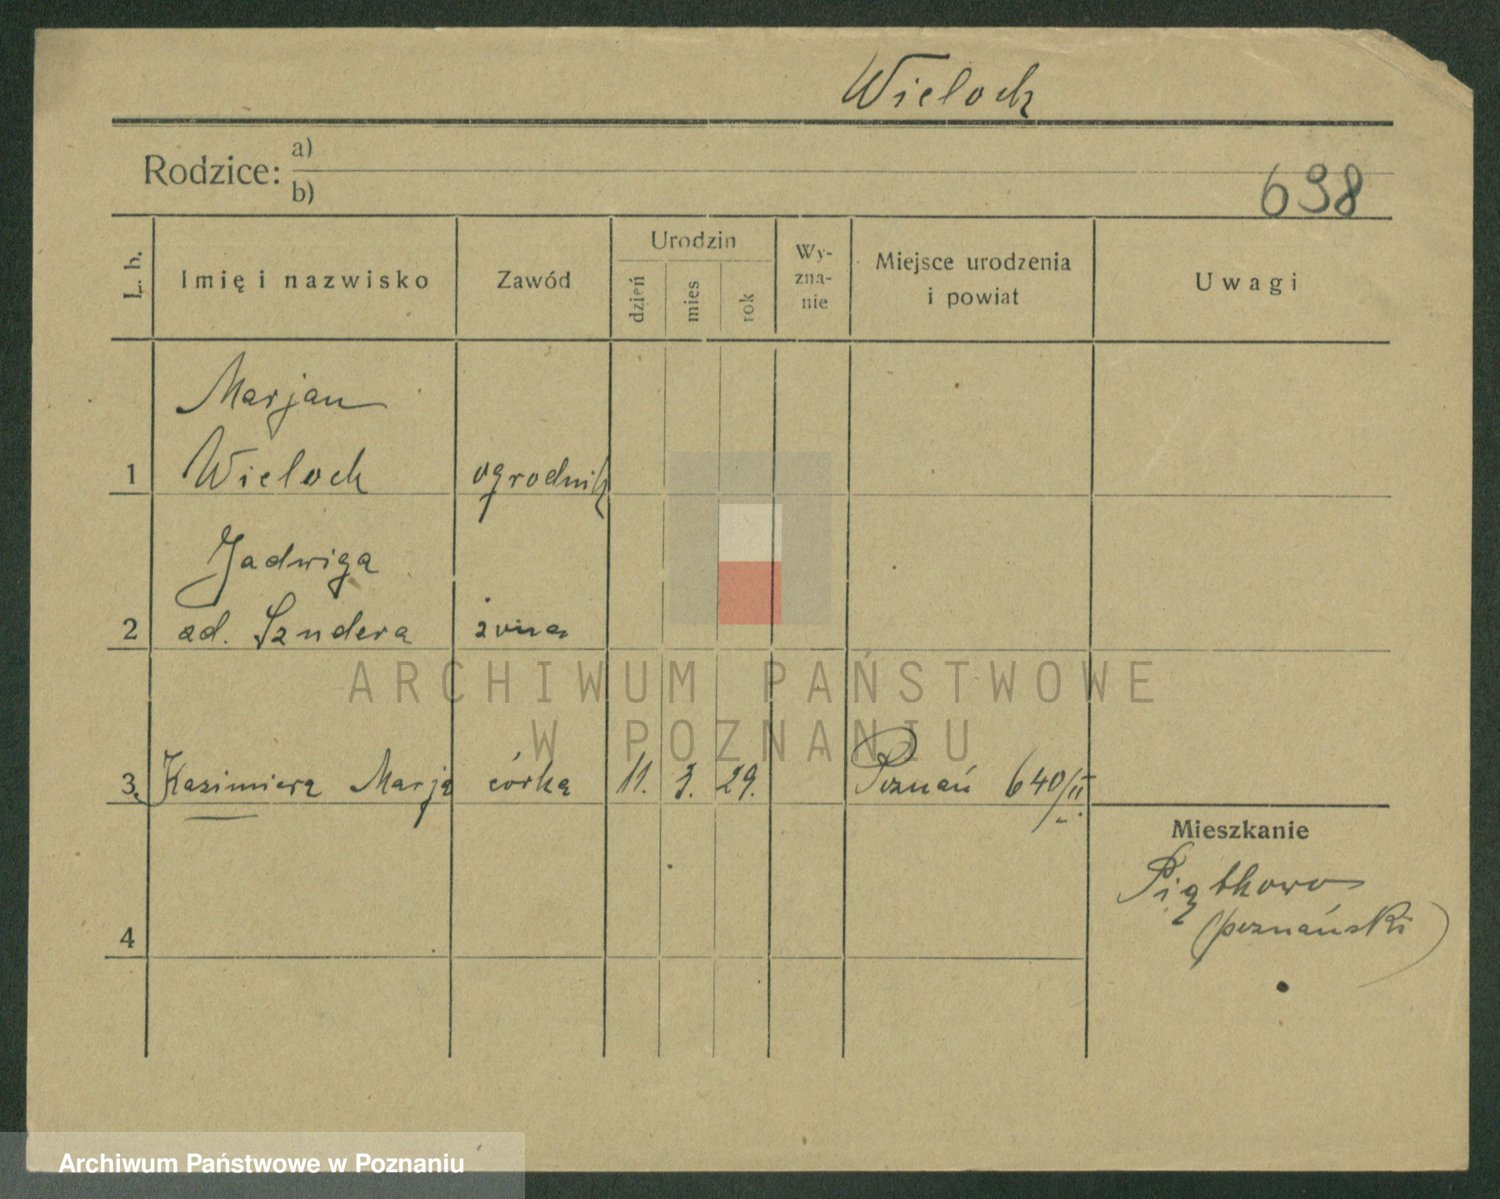 Wieloch
Rodzice: a)
b)
698
L. b.
Imię i nazwisko
Zawód
Urodzin
dzień
mies
rok
Wy-
zna-
nie
Miejsce urodzenia
i powiat
Uwagi
Marjan
1 Wieloch ogrodnik
Jadwiga
2 ad. Szudera żona
ARCHIWUM PAŃSTWOWE
W POZNANIU
3. Kazimiera Marja córka 11. 3. 29. Poznań 640/II.
Mieszkanie
Piątkowo
(poznański)
4
Archiwum Państwowe w Poznaniu